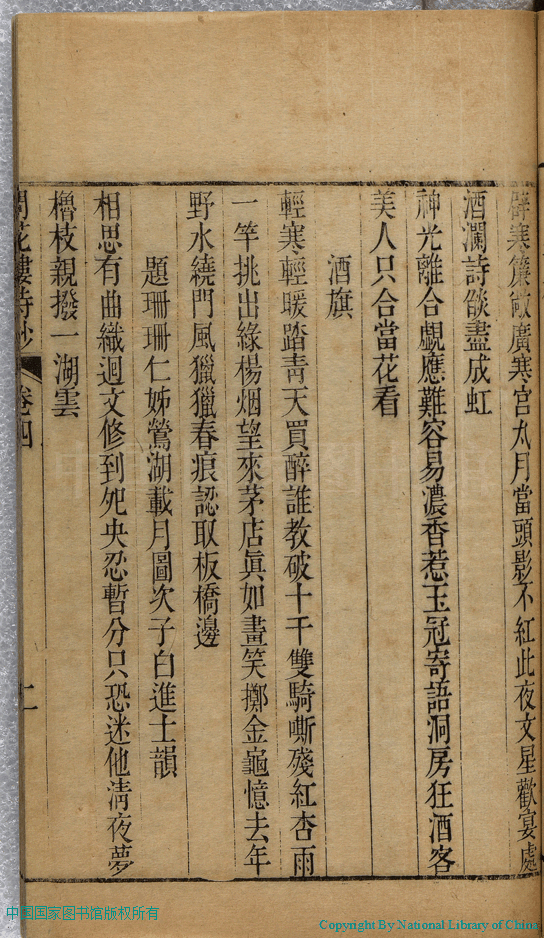 辟寒簾敞廣寒宮太月當頭影不紅此夜文星歡宴處
酒瀾詩燄盡成虹
神光離合覷應難容易濃香惹玉冠寄語洞房狂酒客
美人只合當花看
酒旗
輕寒輕暖踏青天買醉誰教破十千雙騎嘶殘紅杏雨
一竿挑出綠楊烟望來茅店眞如畫笑擲金龜憶去年
野水繞門風獵獵春痕認取板橋邊
題珊珊仁姊鶯湖載月圖次子白進士韻
相思有曲織迴文修到夗央忍暫分只恐迷他淸夜夢
櫓枝親撥一湖雲
花樓詩鈔
卷四
中国国家图书馆版权所有
Copyright By National Library of China